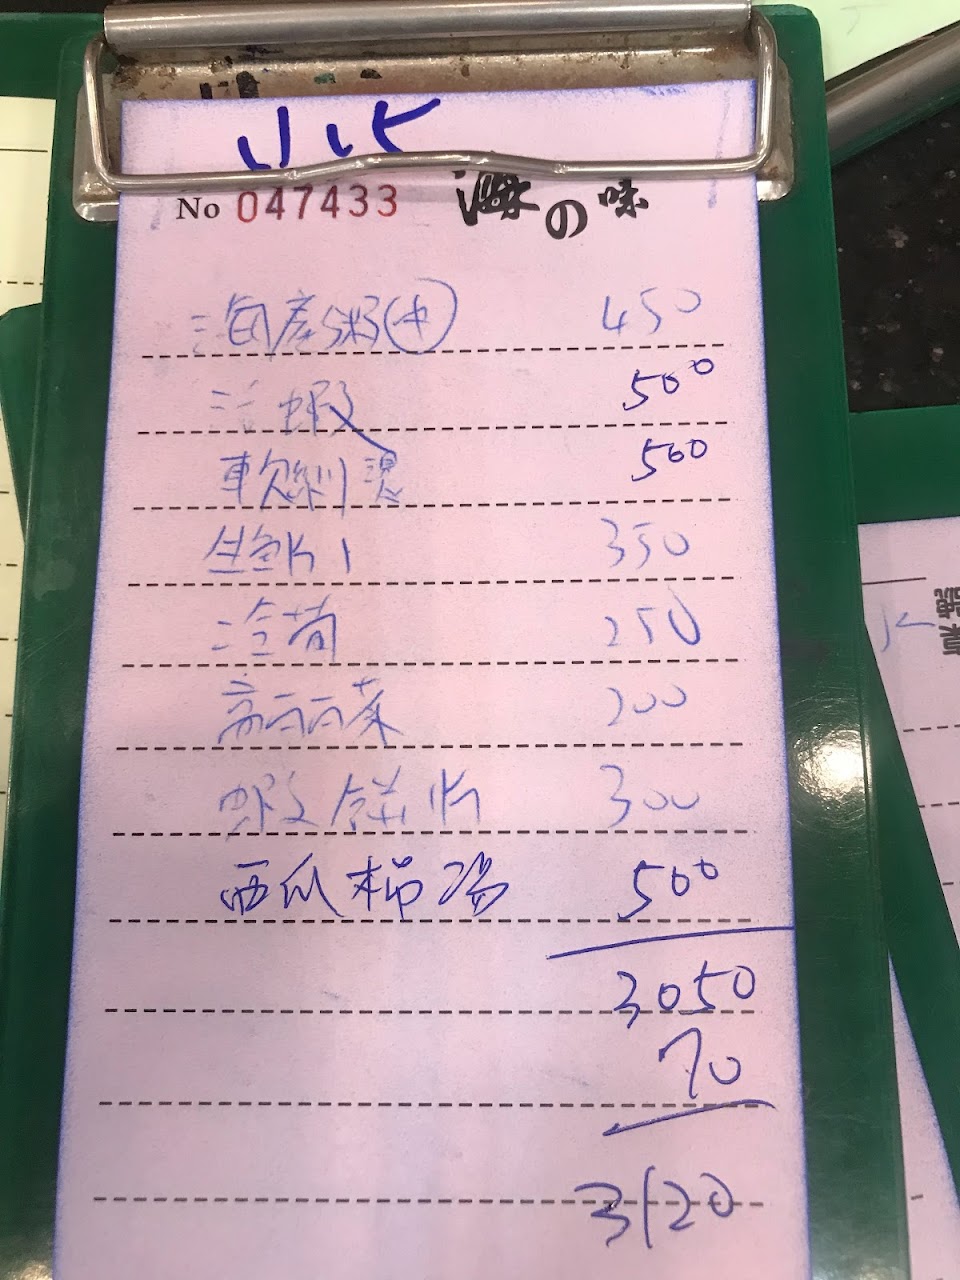 No 047433 海の味
海產粥(中) 450
活蝦 500
軟絲川燙 500
生魚片小 350
冷筍 250
高丽菜 200
蝦餅 300
西瓜 500
3050
70
3120